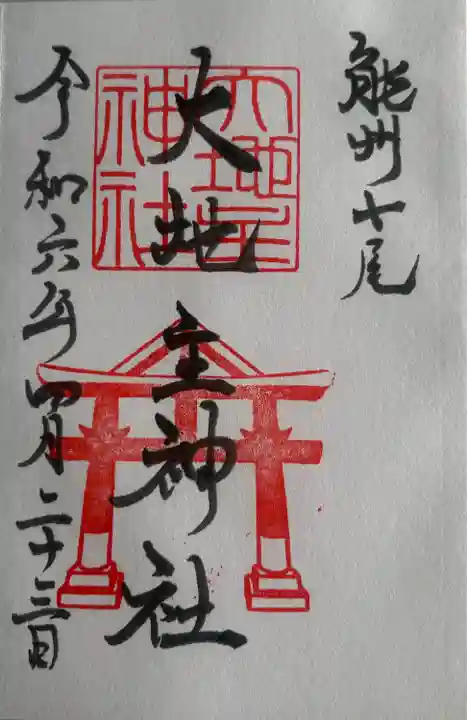 能州七尾
大地主神社
大地主
神社
令和六年四月二十三日